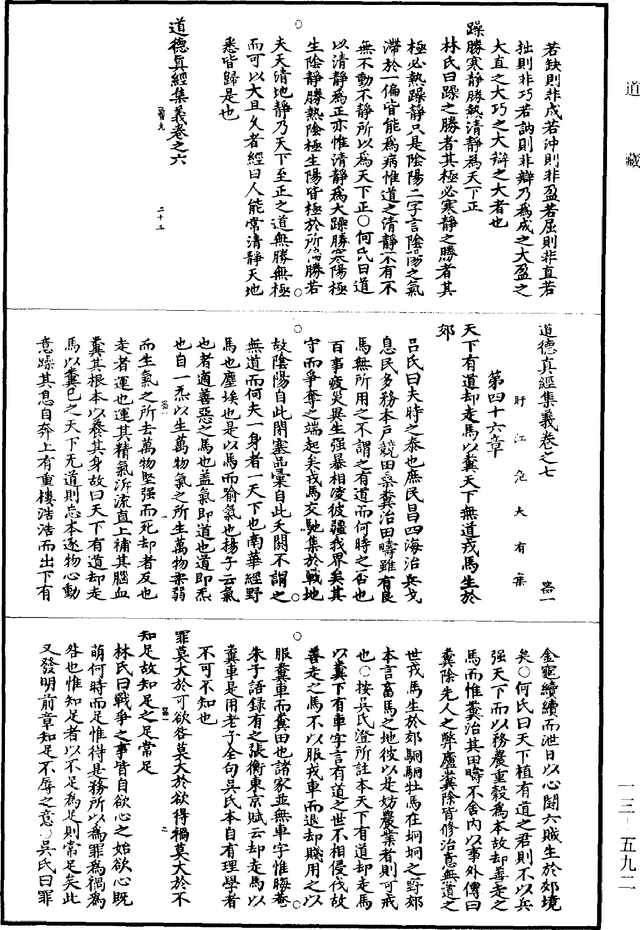 道藏
若缺則非成若沖則非盈若屈則非直若
拙則非巧若訥則非辯乃為成之大盈之
大直之大巧之大辯之大者也
躁勝寒靜勝熱清靜為天下正
林氏曰躁之勝者其極必寒靜之勝者其
極必熱躁靜只是陰陽二字言陰陽之氣
滯於一偏皆能為病惟道之清靜不有不
無不動不靜所以為天下正○何氏曰道
以清靜為正亦惟清靜為大躁勝寒陽極
生陰靜勝熱陰極生陽皆極於所偏勝若
夫天清地靜乃天下至正之道無勝無極
而可以大且久者經曰人能常清靜天地
悉皆歸是也
道德真經集義卷之六
道德真經集義卷之七
盱江危大有集
第四十六章
天下有道却走馬以糞天下無道戎馬生於
郊
呂氏曰夫時之泰也庶民昌四海治兵戈
息民多務本戶競田桑糞治田疇雖有良
馬無所用之不謂之有道而何時之否也
百事疲災異生強暴相凌彼疆我界矣其
守而爭奪之端起矣戎馬交馳集於戰地
故陰陽自此閉塞品彙自此夭閼不謂之
無道而何夫一身者一天下也南華經野
馬也塵埃也是以馬而喻氣也楊子云氣
也者適善惡之馬也蓋氣即道也道即炁
也自一炁以生萬物氣之所生萬物柔弱
而生氣之所去萬物堅強而死却者反也
走者運也運其精氣泝流直上補其腦血
糞其根本以養其身故曰天下有道却走
馬以糞已之天下无道則忘本逐物心動
意躁其息自奔上有重樓浩浩而出下有
金竈續續而泄日以心鬪六賊生於郊境
矣○何氏曰天下植有道之君則不以兵
強天下而以務農重穀為本故却善走之
馬而惟糞治其田疇不舍內以事外傳曰
糞除先人之弊廬糞除皆修治意無道之
世戎馬生於郊駉駉牡馬在坰坰之野郊
本言畜馬之地彼以是妨農業者則可戒
也○按吳氏澄所註本天下有道却走馬
以糞下有車字言有道之世不相侵伐故
善走之馬不以服戎車而退却賤用之以
服糞車而糞田也諸家並無車字惟晦菴
朱子語錄有之張衡東京賦云却走馬以
糞車是用老子全句吳氏本自有理學者
不可不知也
罪莫大於可欲咎莫大於欲得禍莫大於不
知足故知足之足常足
林氏曰戰爭之事皆自欲心之始欲心既
萌何時而足惟得是務所以為罪為禍為
咎也惟知足者以不足為足則常足矣此
又發明前章知足不辱之意○吳氏曰罪
一三·五九二